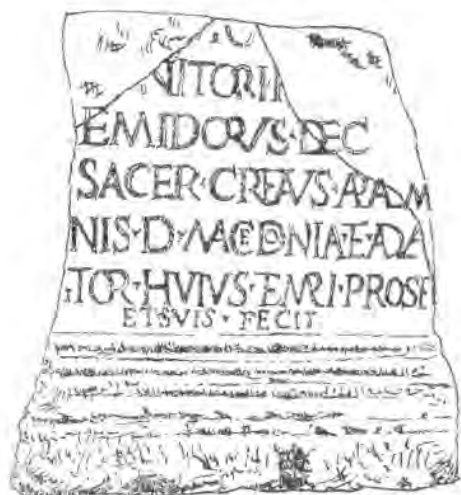 NITORI
EMIDORVS·DEC
SACER·CREAVS·APADM
NIS·D·MACEDONIA·E·ADA
·TOR·HVIVS·EMRI·PROSE
ETSVIS·FECIT